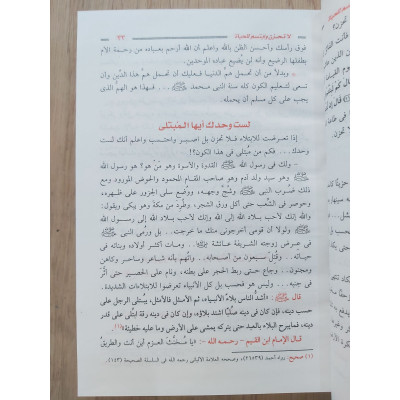 لا تحزن وابتسم للحياة
٣٣
فوق رأسك وأحسن الظن بالله واعلم أن الله أرحم بعباده من رحمة الأم
بطفلها الرضيع وأنه لن يضيع عباده الموحدين.
- وبدلاً من أن تحمل هم الدنيا فعليك أن تحمل هم هذا الدين وأن
تسعى لتعليم الكون كله سنة النبى محمد ﷺ... فهذا هو الهم الذى
يجب على كل مسلم أن يحمله.
لست وحدك أيها المبتلى
إذا تعرضت للابتلاء فلا تحزن بل اصبر واحتسب واعلم أنك لست
وحدك... فكم من مُبتلى فى هذا الكون؟!!
- ولك فى رسول الله ﷺ القدوة والأسوة وهو مَنْ هو؟ هو رسول الله
ﷺ وهو سيد ولد آدم وهو صاحب المقام المحمود والحوض المورود ومع
ذلك ضُرب النبى ﷺ وشُج وجهه، ووُضع سلى الجزور على ظهره،
وحوصر فى الشعب حتى أكل ورق الشجر، وطُرد من مكة وهو يبكى ويقول:
والله إنك لأحب بلاد الله إلى الله وإنك لأحب بلاد الله إلى رسول الله
ﷺ ولولا أن قومى أخرجونى منك ما خرجت.. بل ورُمى النبى ﷺ
فى عرض زوجته الشريفة عائشة ... ومات أكثر أولاده وبناته فى
حياته.. وقُتل سبعون من أصحابه.. واتُّهم بأنه شاعر وساحر وكاهن
ومجنون.. وجاع حتى ربط الحجر على بطنه، ونام على الحصير حتى أثَّر
فى جنبه... وليس هو فحسب بل كل الأنبياء تعرضوا للابتلاءات الشديدة.
قال ﷺ: «أشد الناس بلاءً الأنبياء، ثم الأمثل فالأمثل، يبتلى الرجل على
حسب دينه، فإن كان فى دينه صلبًا اشتد بلاؤه، وإن كان فى دينه رقة ابتلى على قدر
دينه، فما يبرح البلاء بالعبد حتى يتركه يمشى على الأرض وما عليه خطيئة»(١).
قال الإمام ابن القيم - رحمه الله -: «يا مُخنَّث العزم أين أنت والطريقُ
(١) صحيح: رواه أحمد (٢٦٥٣٩)، وصححه العلامة الألبانى رحمه الله فى السلسلة الصحيحة (١٤٣).